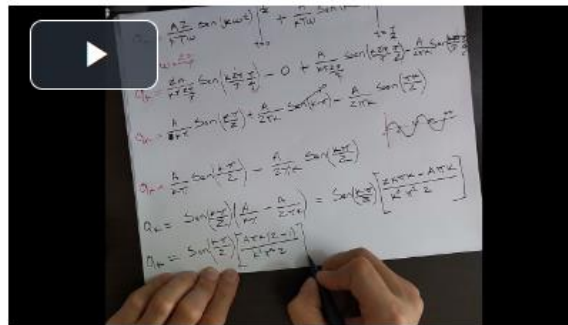 = A2/(kTω) Sen(kωt) |
ak = 2A/(kT 2π/T) Sen(k 2π/T T/4) - 0 + A/(kT 2π/T) Sen(k 2π/T T/2) - A/(2πk) Sen(
ak = A/(kπ) Sen(kπ/2) + A/(2πk) Sen(kπ) - A/(2πk) Sen(πk/2)
ak = A/(kπ) Sen(kπ/2) - A/(2πk) Sen(kπ/2)
ak = Sen(kπ/2) (A/(kπ) - A/(2πk)) = Sen(kπ/2) [(2Aπk - Aπk)/(k²π² 2)]
ak = Sen(kπ/2) [Aπk(2-1)/(k²π² 2)]